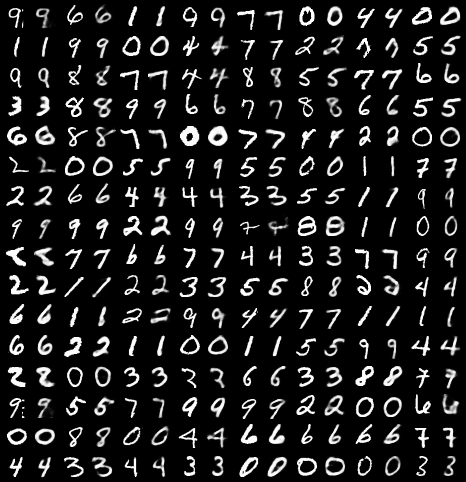 9 9 6 6 1 1 9 9 7 7 0 0 4 4 0 0
1 1 9 9 0 0 4 4 7 7 2 2 7 7 5 5
9 9 8 8 7 7 4 4 8 8 5 5 7 7 6 6
3 3 8 8 9 9 6 6 7 7 8 8 6 6 5 5
6 6 8 8 7 7 0 0 7 7 4 4 2 2 0 0
2 2 0 0 5 5 9 9 5 5 0 0 1 1 7 7
2 2 6 6 4 4 4 4 3 3 5 5 1 1 9 9
9 9 9 9 2 2 9 9 7 8 8 1 1 0 0
7 7 6 6 7 7 4 4 3 3 7 7 9 9
2 2 1 1 2 2 3 3 5 5 8 8 2 2 4 4
6 6 1 1 2 2 9 9 4 4 7 7 1 1 1 1
6 6 2 2 1 1 0 0 1 1 5 5 9 9 4 4
2 2 0 0 3 3 3 3 6 6 3 3 8 8 7 7
9 9 5 5 7 7 9 9 9 9 2 2 0 0 6 6
0 0 8 8 0 0 4 4 6 6 6 6 6 6 7 7
4 4 3 3 4 4 3 3 0 0 0 0 0 0 3 3